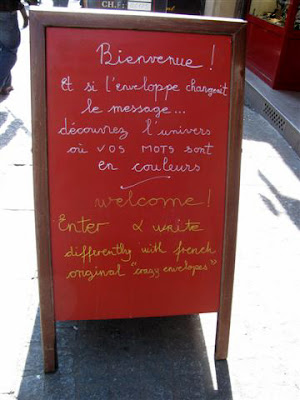 CH.F
Bienvenue !
Et si l'enveloppe changeait
le message...
découvrez l'univers
où VOS MOTS sont
en couleurs
welcome !
Enter & write
differently with french
original "crazy envelopes"